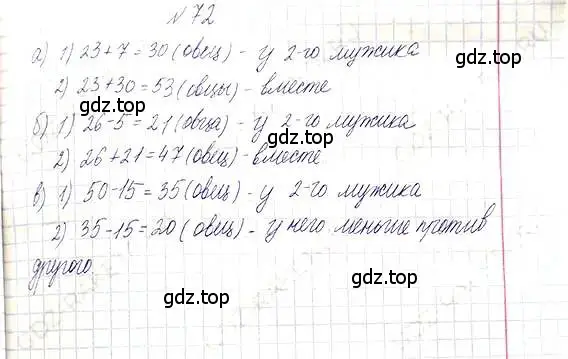 № 72
а) 1) 23+7=30 (овец) - у 2-го мужика
2) 23+30=53 (овцы) - вместе
gdz.top
б) 1) 26-5=21 (овца) - у 2-го мужика
gdz.top
2) 26+21=47 (овец) - вместе
gdz.top
в) 1) 50-15=35 (овец) - у 2-го мужика
gdz.top
2) 35-15=20 (овец) - у него меньше против
другого.
gdz.top
gdz.top